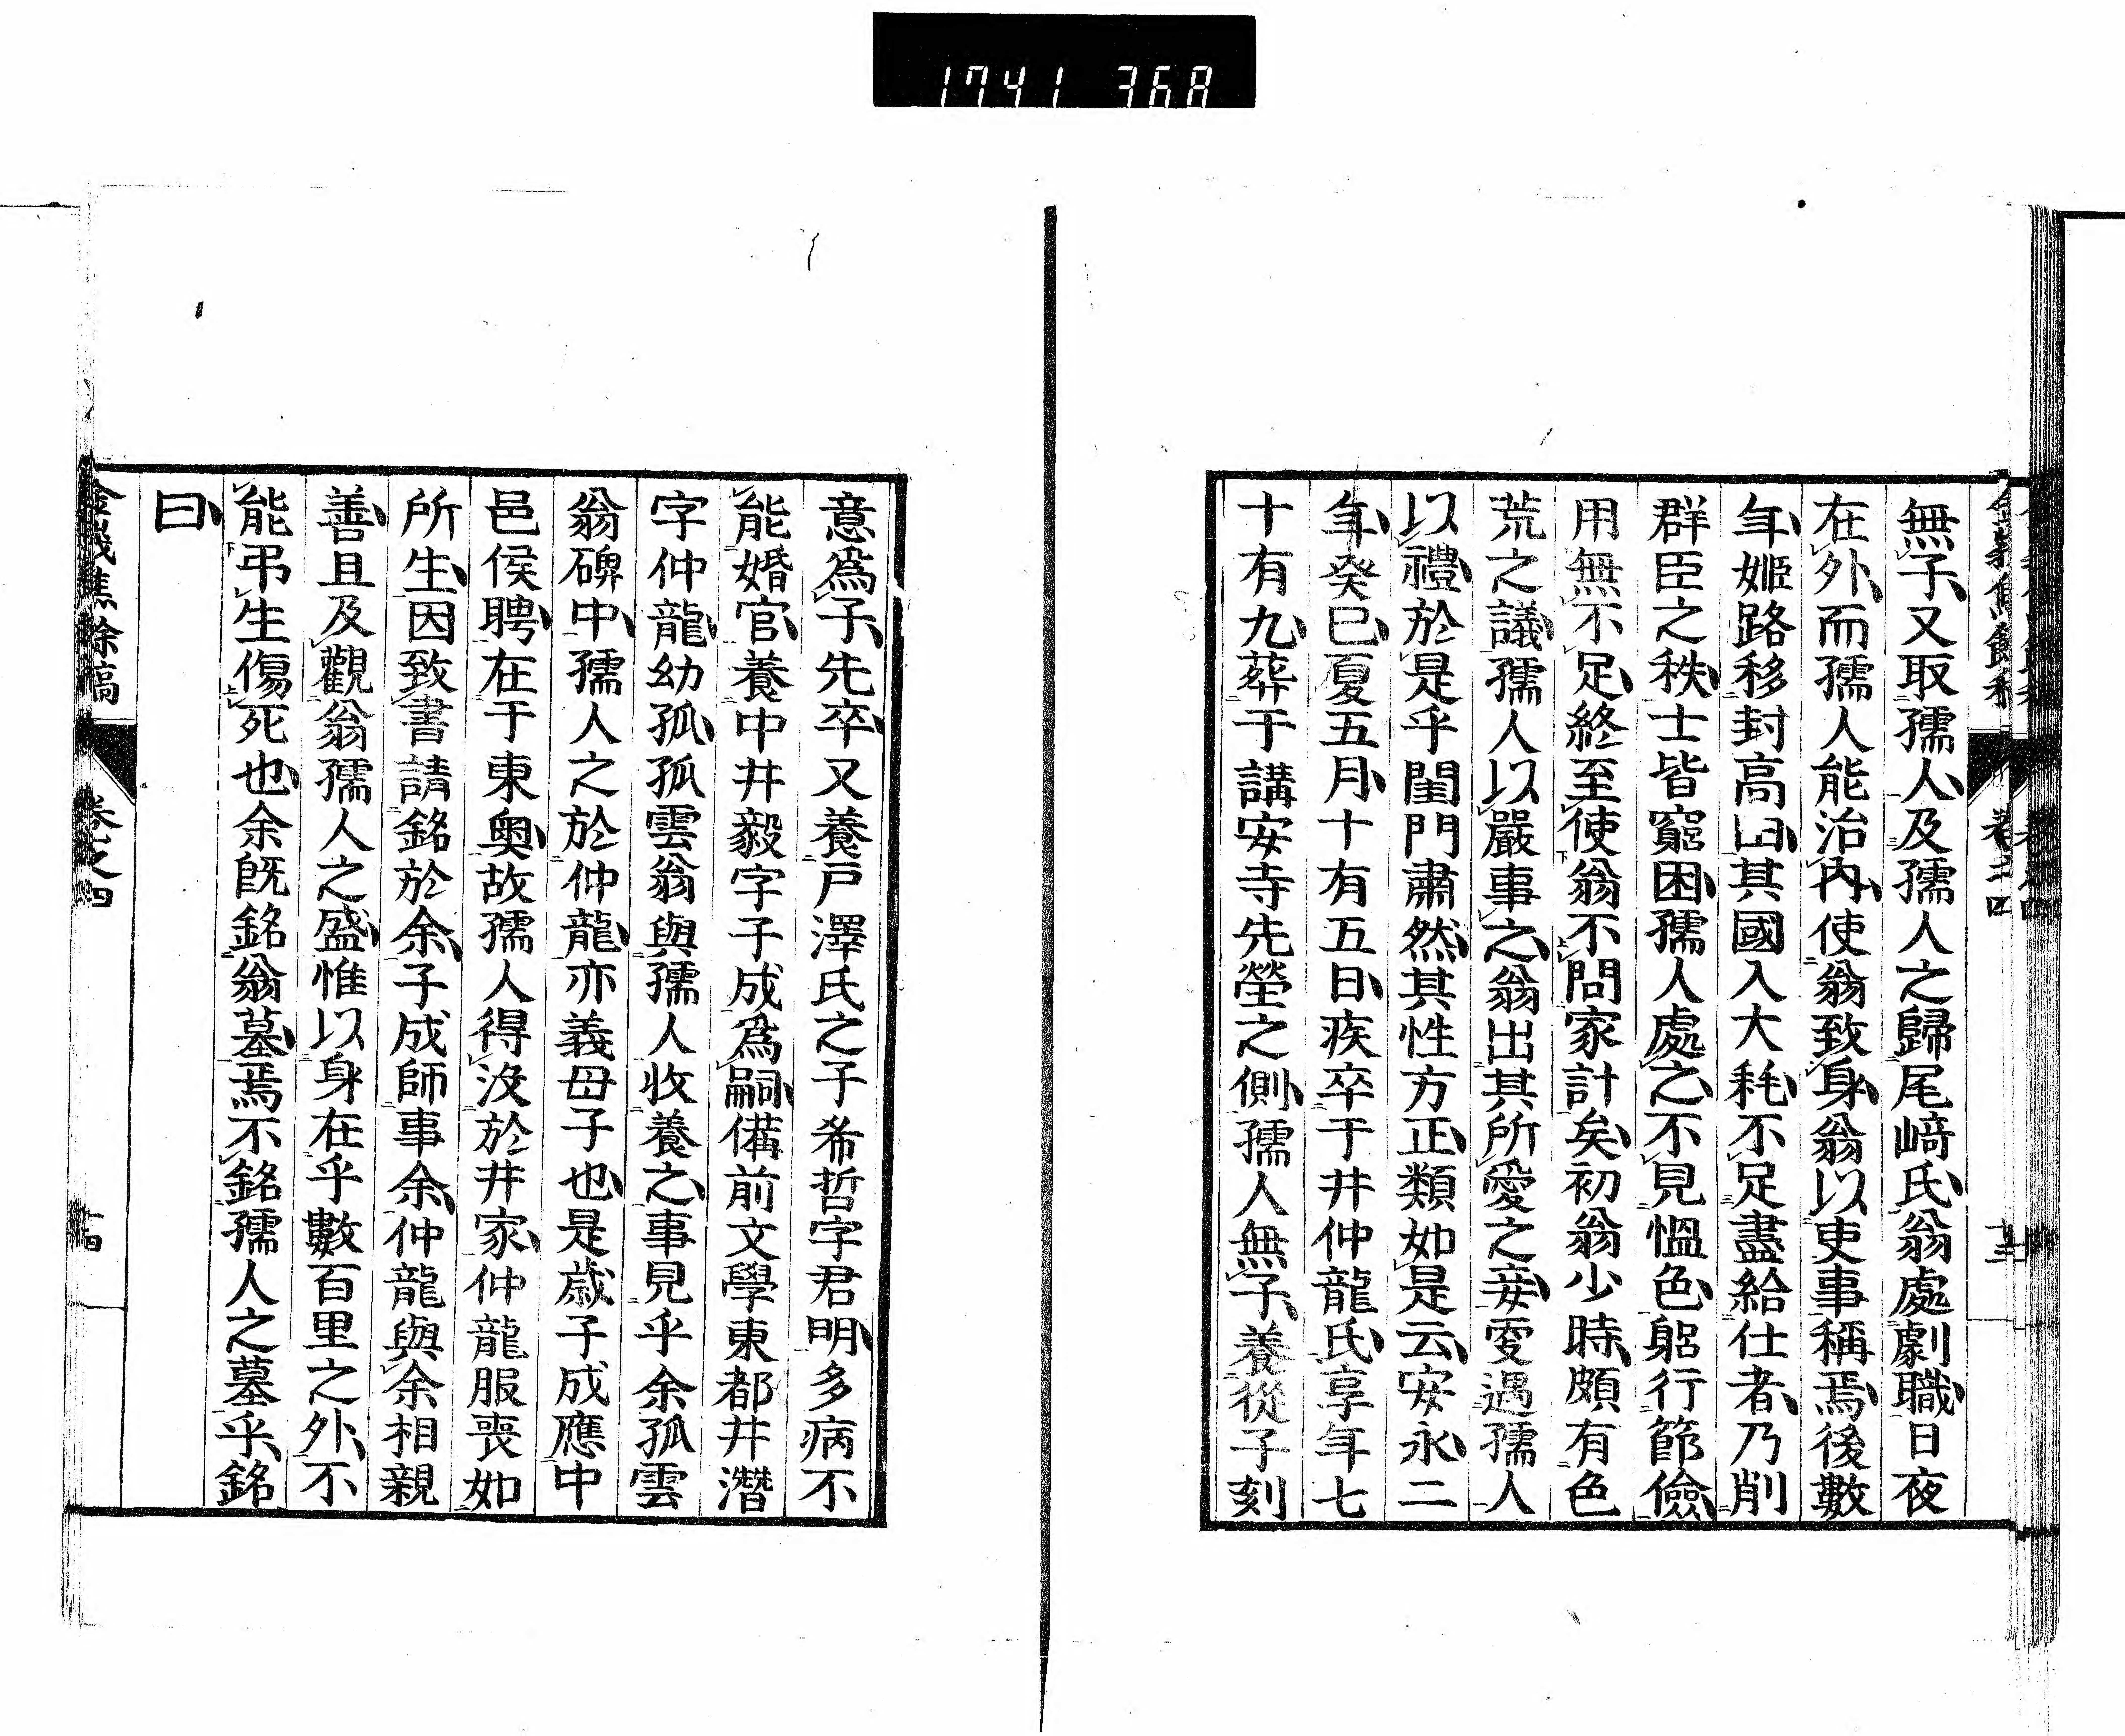 1741 368
無子又取孺人及孺人之歸尾﨑氏翁處劇職日夜
在外而孺人能治内使翁致身翁以吏事稱焉後數
年姫路移封高田其國入大耗不足盡給仕者乃削
群臣之秩士皆窮困孺人處之不見慍色躬行節儉
用無不足終至使翁不問家計矣初翁少時頗有色
荒之議孺人以嚴事之翁出其所愛之妾愛遇孺人
以禮於是乎閨門肅然其性方正類如是云安永二
年癸巳夏五月十有五日疾卒于井仲龍氏享年七
十有九葬于講安寺先塋之側孺人無子養從子刻
意爲子先卒又養戸澤氏之子希哲字君明多病不
能婚官養中井毅字子成爲嗣備前文學東都井潛
字仲龍幼孤孤雲翁與孺人收養之事見乎余孤雲
翁碑中孺人之於仲龍亦義母子也是歳子成應中
邑侯聘在于東奥故孺人得沒於井家仲龍服喪如
所生因致書請銘於余子成師事余仲龍與余相親
善且及觀翁孺人之盛惟以身在乎數百里之外不
能弔生傷死也余既銘翁墓焉不銘孺人之墓乎銘
曰
金峨焦餘稿 卷之四 十四